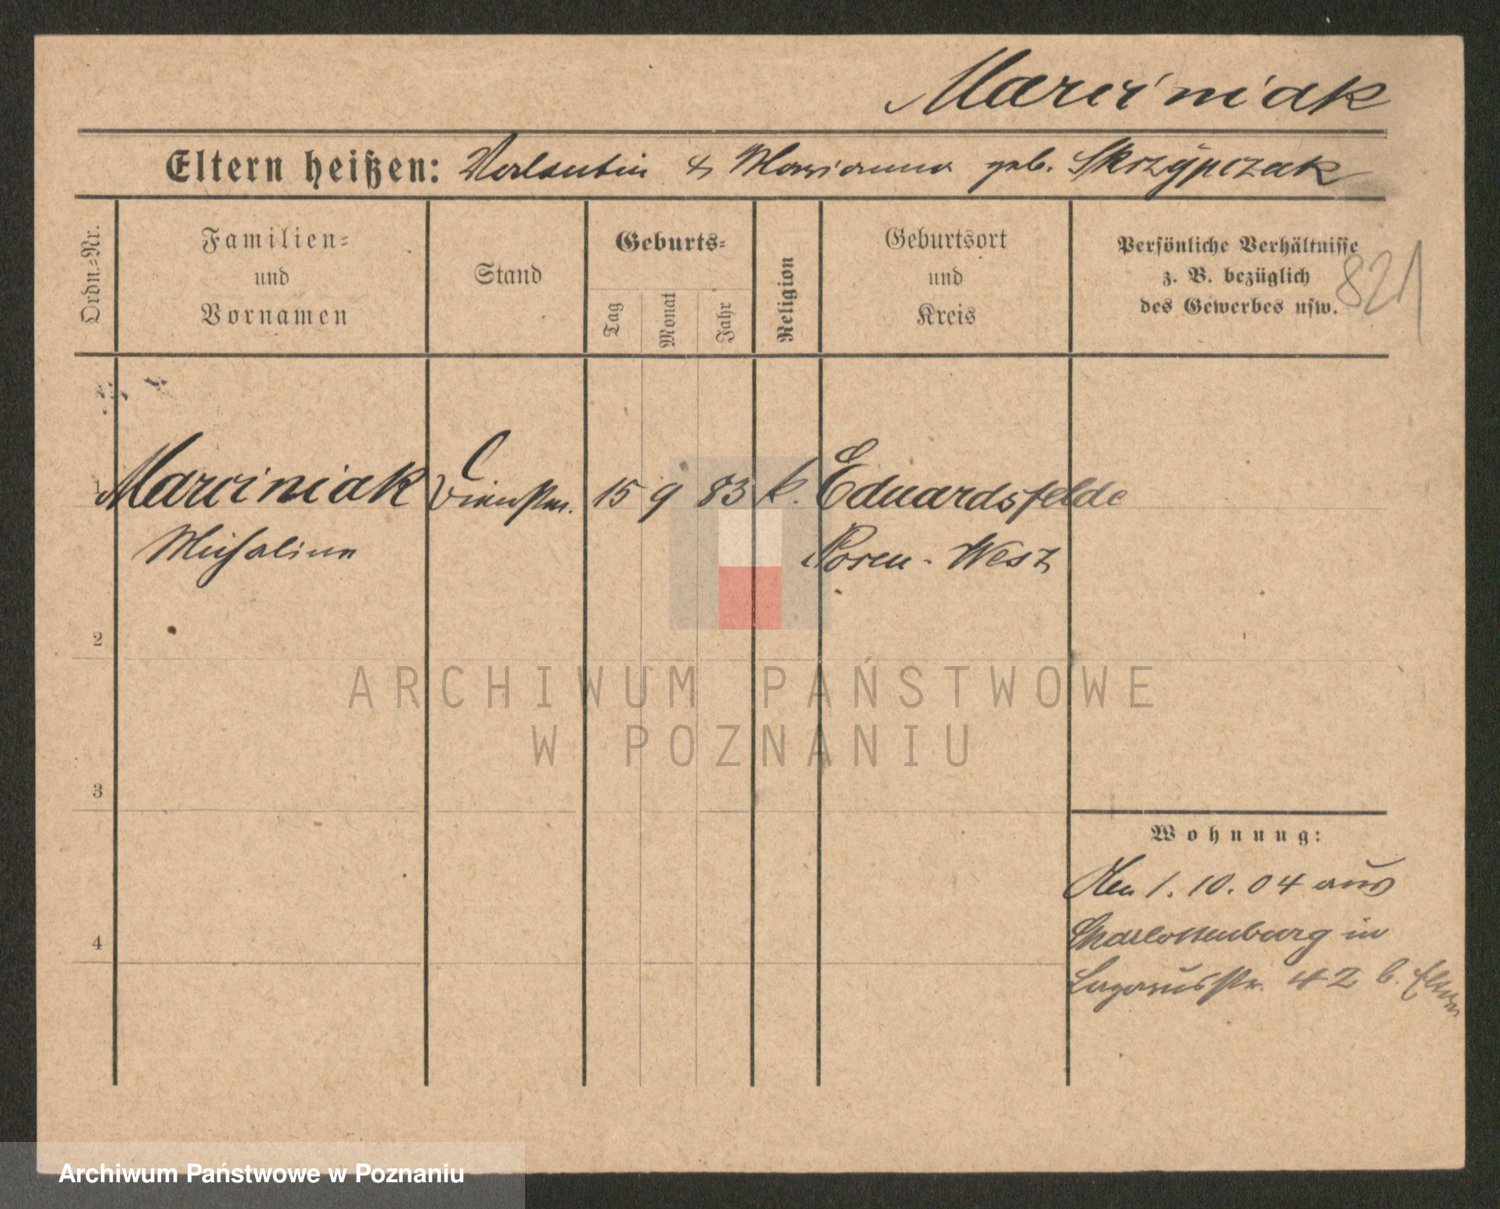 Marciniak
Eltern heißen: Valentin & Marianna geb. Skrzypczak
Ordn.-Nr.
Familien-
und
Vornamen
Stand
Geburts-
Tag
Monat
Jahr
Religion
Geburtsort
und
Kreis
Persönliche Verhältnisse
z. B. bezüglich
des Gewerbes usw.
821
1 Marciniak Dienstm. 15 9 83 k. Eduardsfelde
Michalina Posen-West
2
ARCHIWUM PAŃSTWOWE
W POZNANIU
3
Wohnung:
Den 1. 10. 04 aus
Charlottenburg in
4
Lazarusstr. 42 b. Eltern
Archiwum Państwowe w Poznaniu